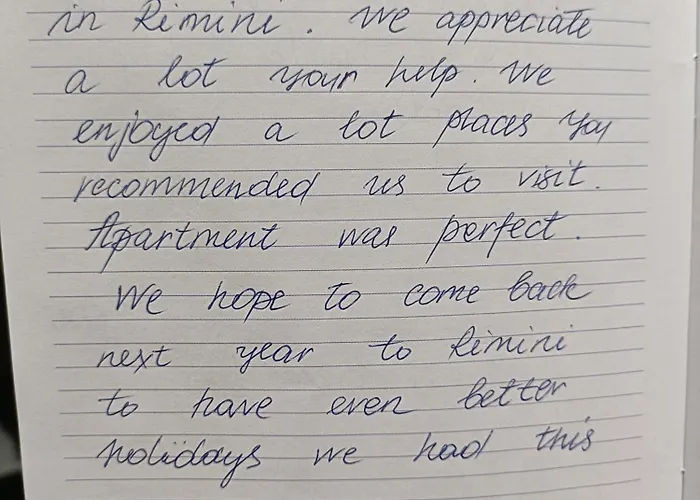 in Rimini. We appreciate
a lot your help. We
enjoyed a lot places you
recommended us to visit.
Apartment was perfect.
We hope to come back
next year to Rimini
to have even better
holidays we had this